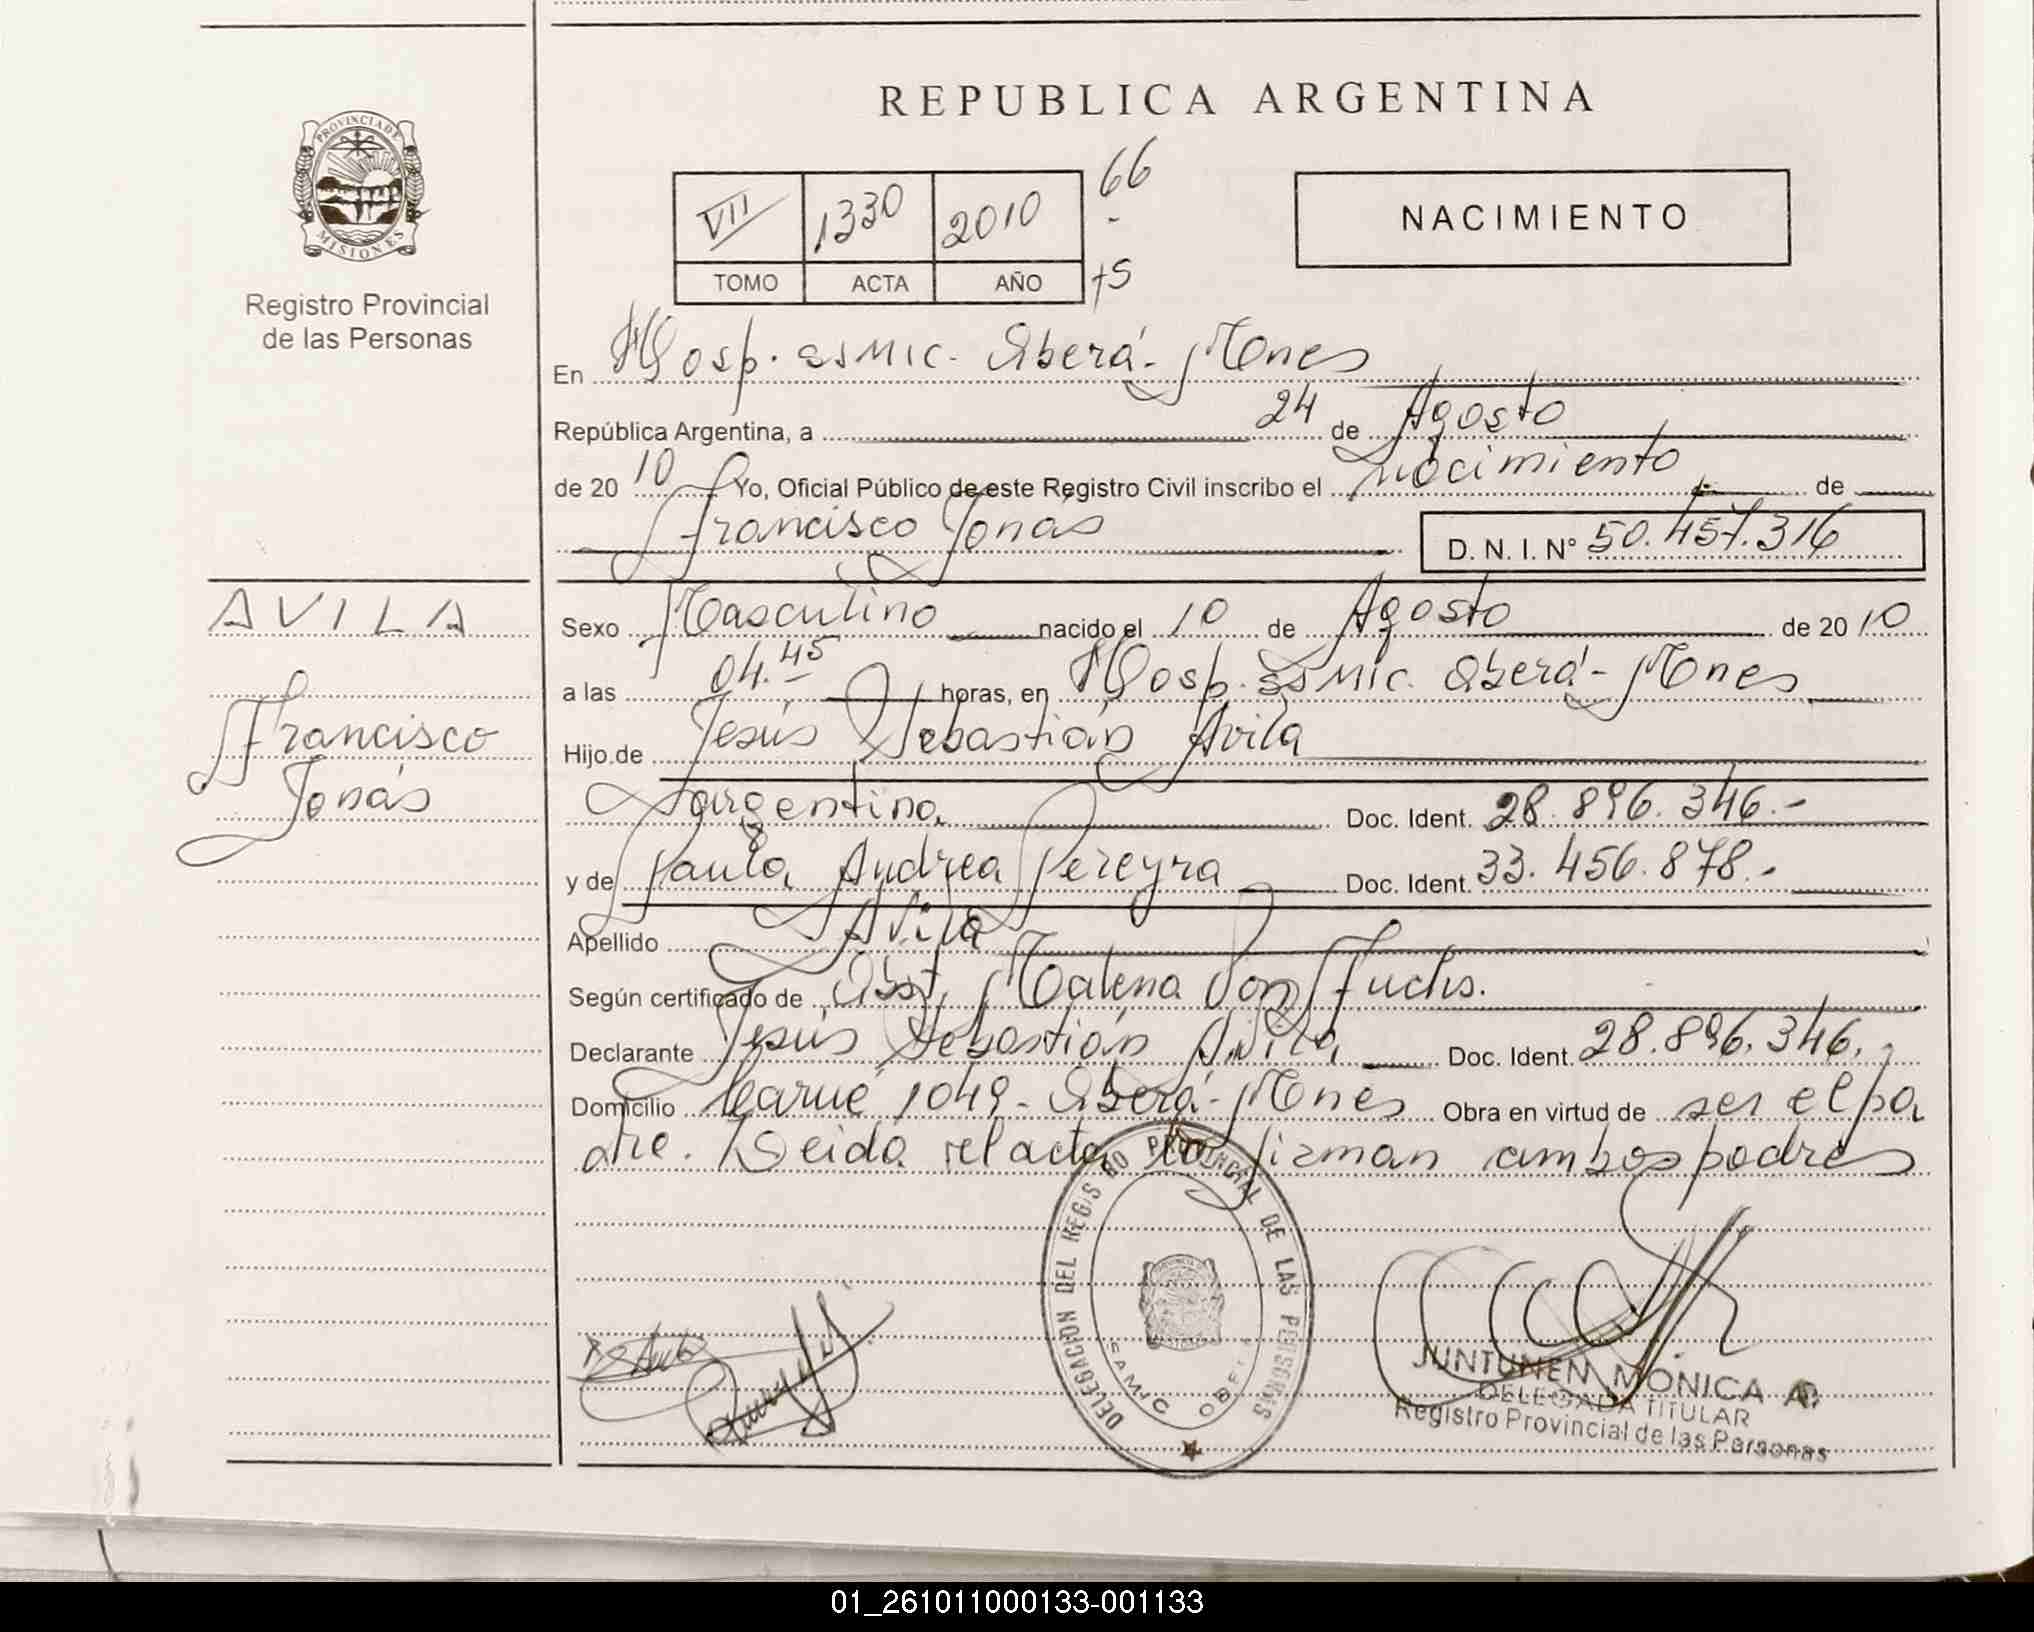 REPUBLICA ARGENTINA
PROVINCIA DE
MISIONES
Registro Provincial
de las Personas
VII 1330 2010 66
-
75
TOMO ACTA AÑO
NACIMIENTO
En Hosp. SAMIC. Oberá - Mnes
República Argentina, a 24 de Agosto
de 20 10 Yo, Oficial Público de este Registro Civil inscribo el nacimiento de
Francisco Jonás D. N. I. N° 50.457.316
AVILA
Francisco
Jonás
Sexo Masculino nacido el 10 de Agosto de 20 10
a las 04.45 horas, en Hosp. SAMIC. Oberá - Mnes
Hijo de Jesús Sebastián Avila
argentina Doc. Ident. 28.896.346.-
y de Paula Andrea Pereyra Doc. Ident. 33.456.878.-
Apellido Avila
Según certificado de Obst. Malena Von Fuchs.
Declarante Jesús Sebastián Avila Doc. Ident. 28.896.346.-
Domicilio Carué 1049 - Oberá - Mnes Obra en virtud de ser el pa
dre. Leida el acta la firman ambos padres
DELEGACION DEL REGISTRO PROVINCIAL DE LAS PERSONAS
SAMIC OBERA
JUNTUNEN MÓNICA A.
DELEGADA TITULAR
Registro Provincial de las Personas
01_261011000133-001133